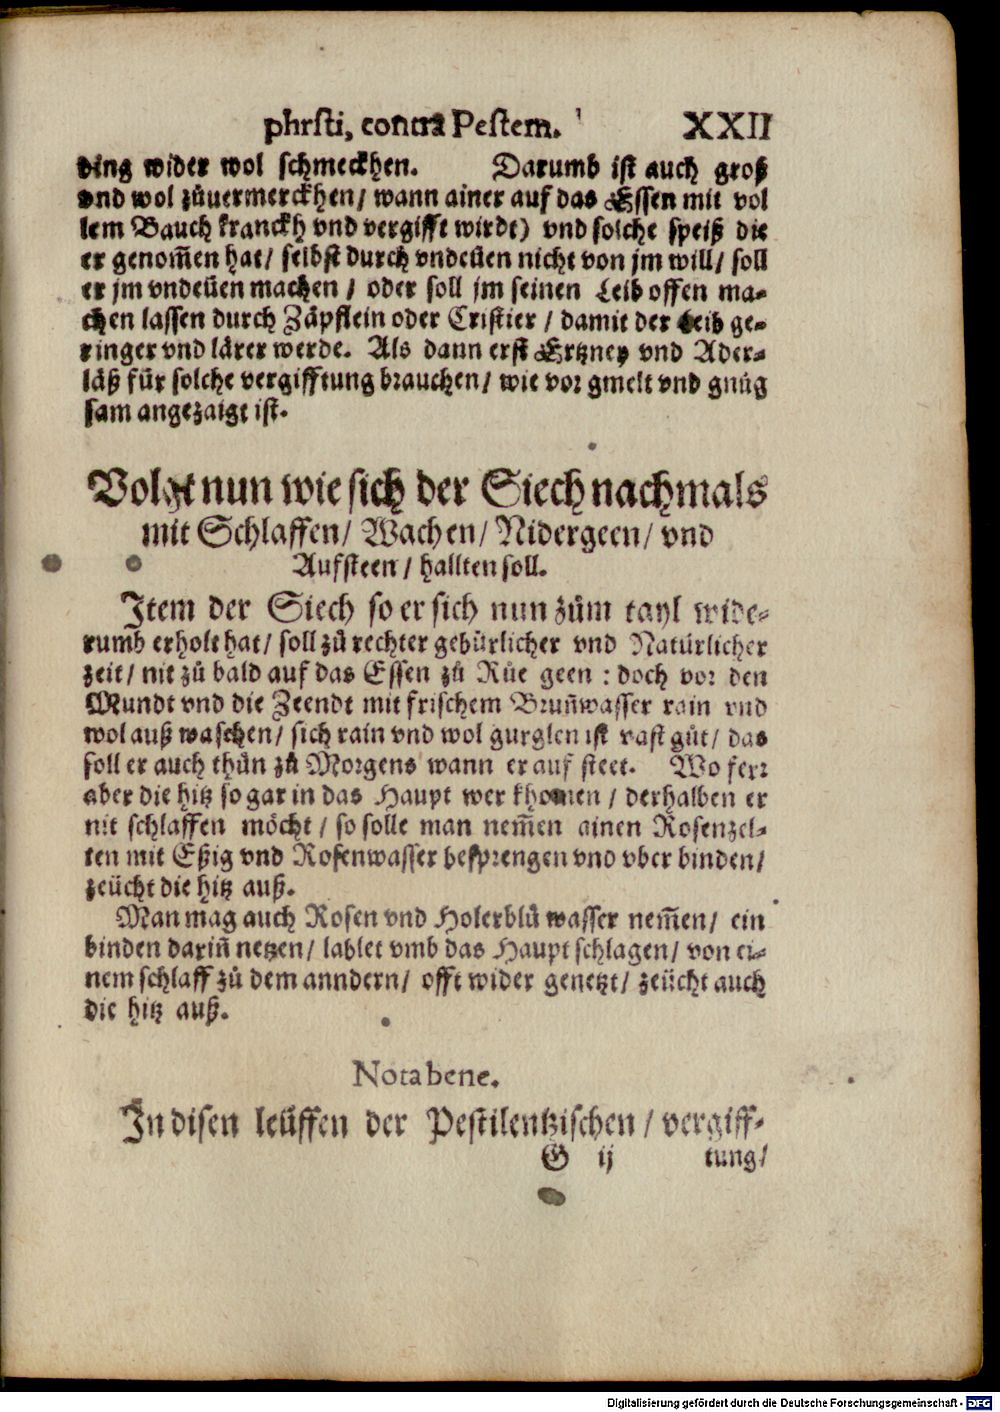 phrsti, contrà Pestem. XXII
ding wider wol schmeckhen. Darumb ist auch groß
vnd wol zůuermerckhen/ wann ainer auf das Essen mit vol
lem Bauch kranckh vnd vergifft wirdt) vnd solche speiß die
er genom̃en hat/ selbst durch vndeüen nicht von jm will/ soll
er jm vndeüen machen / oder soll jm seinen Leib offen ma-
chen lassen durch Zäpflein oder Cristier / damit der Leib ge-
ringer vnd lärer werde. Als dann erst Ertzney vnd Ader-
läß für solche vergifftung brauchen/ wie vor gmelt vnd gnůg
sam angezaigt ist.
Volgt nun wie sich der Siech nachmals
mit Schlaffen/ Wachen/ Nidergeen/ vnd
Aufsteen / hallten soll.
Item der Siech so er sich nun zům tayl wide-
rumb erholt hat/ soll zů rechter gebürlicher vnd Natürlicher
zeit/ nit zů bald auf das Essen zů Růe geen : doch vor den
Mundt vnd die Zeendt mit frischem Brun̄wasser rain vnd
wol auß waschen/ sich rain vnd wol gurglen ist vast gůt/ das
soll er auch thůn zů Morgens wann er auf steet. Wo ferr
aber die hitz so gar in das Haupt wer khomen / derhalben er
nit schlaffen möcht / so solle man nem̃en ainen Rosenzel-
ten mit Eßig vnd Rosenwasser besprengen vnd vber binden/
zeücht die hitz auß.
Man mag auch Rosen vnd Holerblů wasser nem̃en/ ein
binden darin̄ netzen/ lablet vmb das Haupt schlagen/ von ei-
nem schlaff zů dem anndern/ offt wider genetzt/ zeücht auch
die hitz auß.
Nota bene.
In disen leüffen der Pestilentzischen / vergiff-
G ij tung/
Digitalisierung gefördert durch die Deutsche Forschungsgemeinschaft - DFG